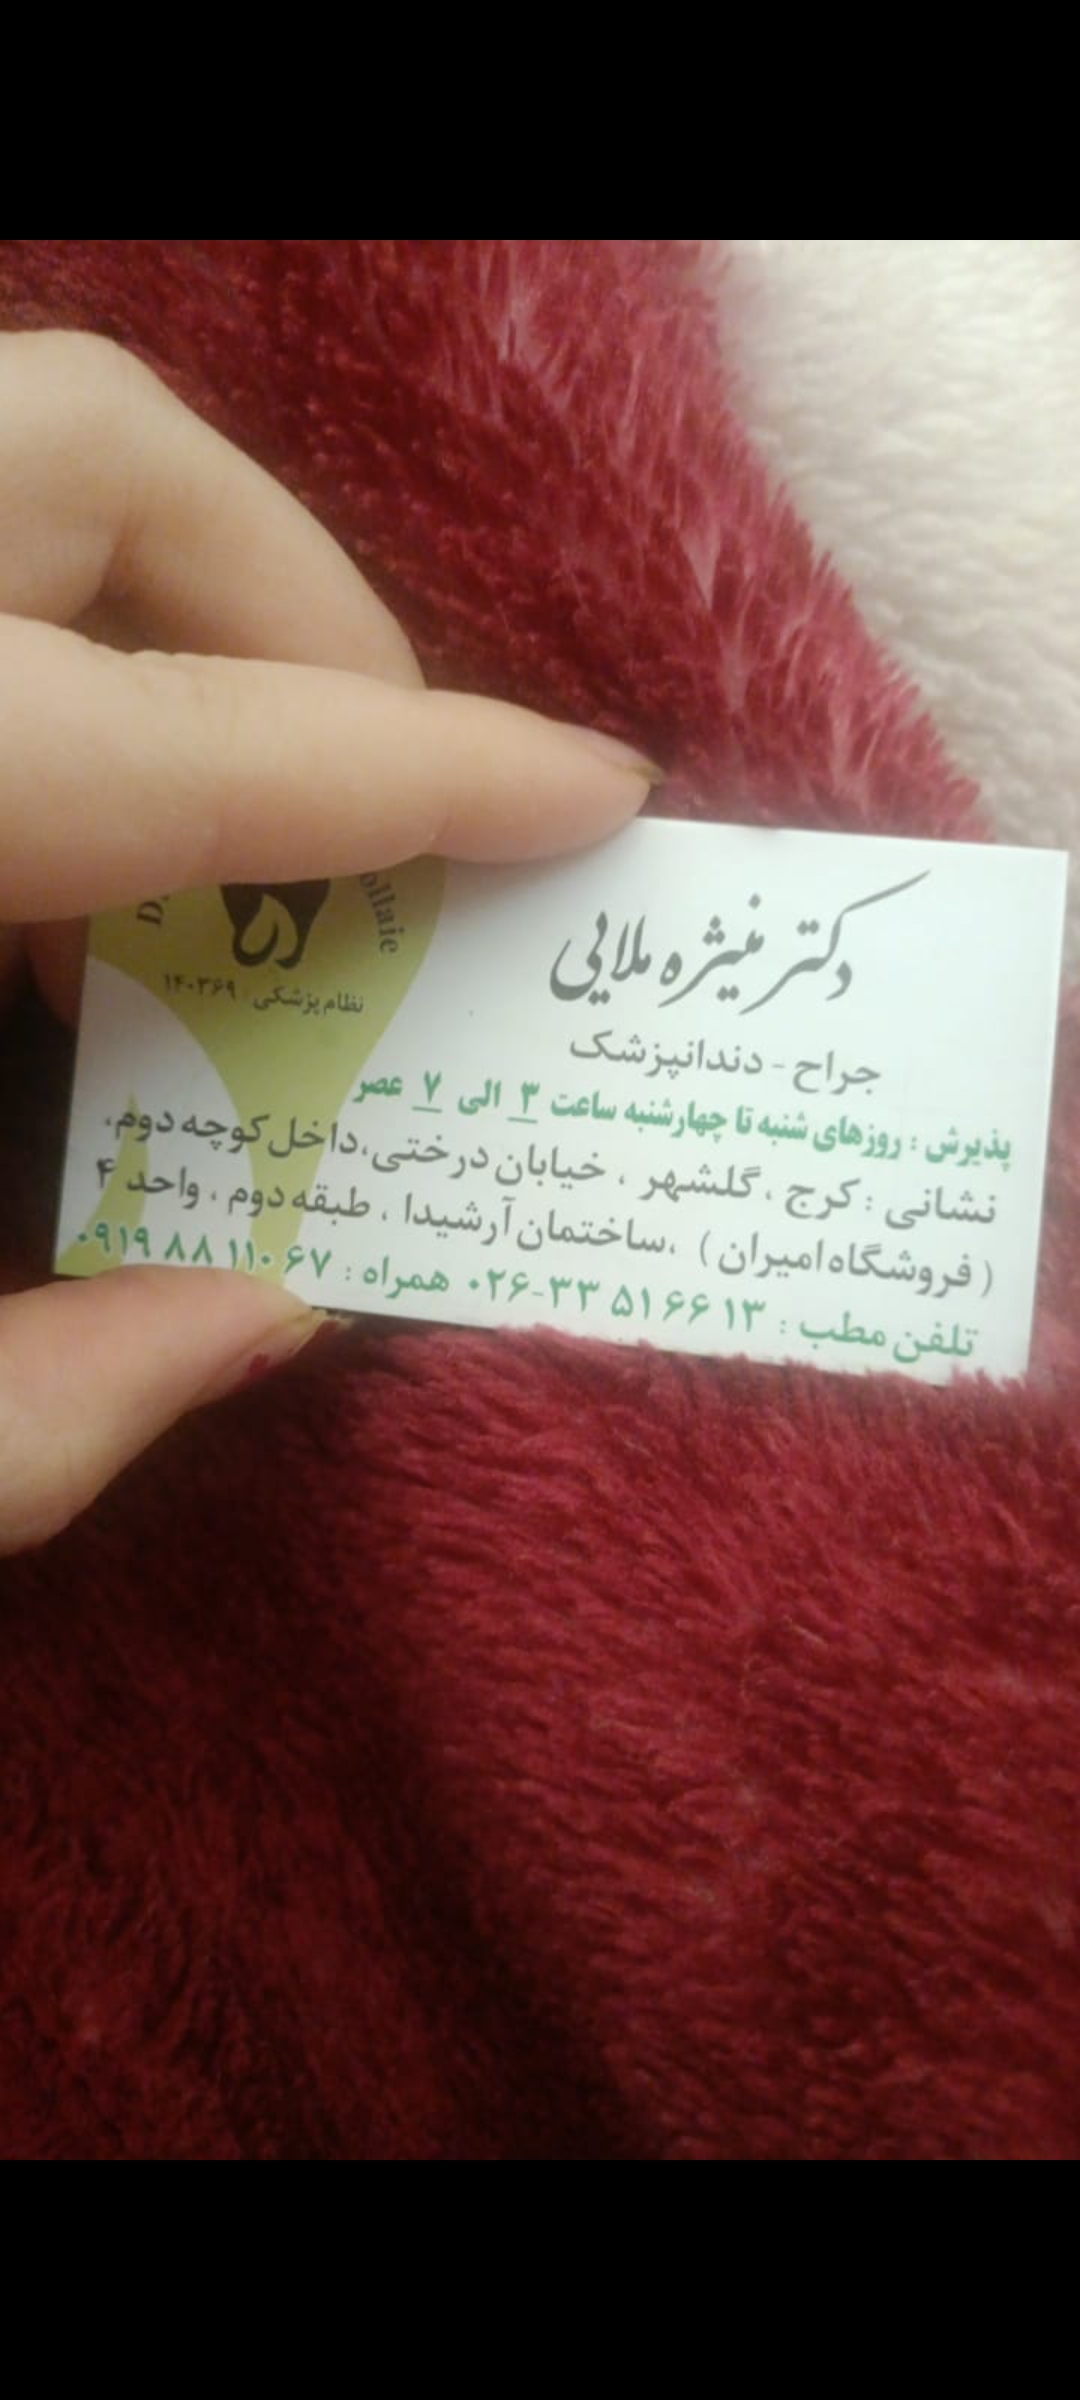 ollaie
نظام پزشکی : ۱۴۰۳۶۹
دکتر منیژه ملایی
جراح - دندانپزشک
پذیرش : روزهای شنبه تا چهارشنبه ساعت ۳ الی ۷ عصر
نشانی : کرج ، گلشهر ، خیابان درختی،داخل کوچه دوم،
( فروشگاه امیران ) ،ساختمان آرشیدا ، طبقه دوم ، واحد ۴
تلفن مطب : ۱۳ ۶۶ ۵۱ ۳۳-۰۲۶ همراه : ۶۷ ۱۱۰ ۸۸ ۰۹۱۹